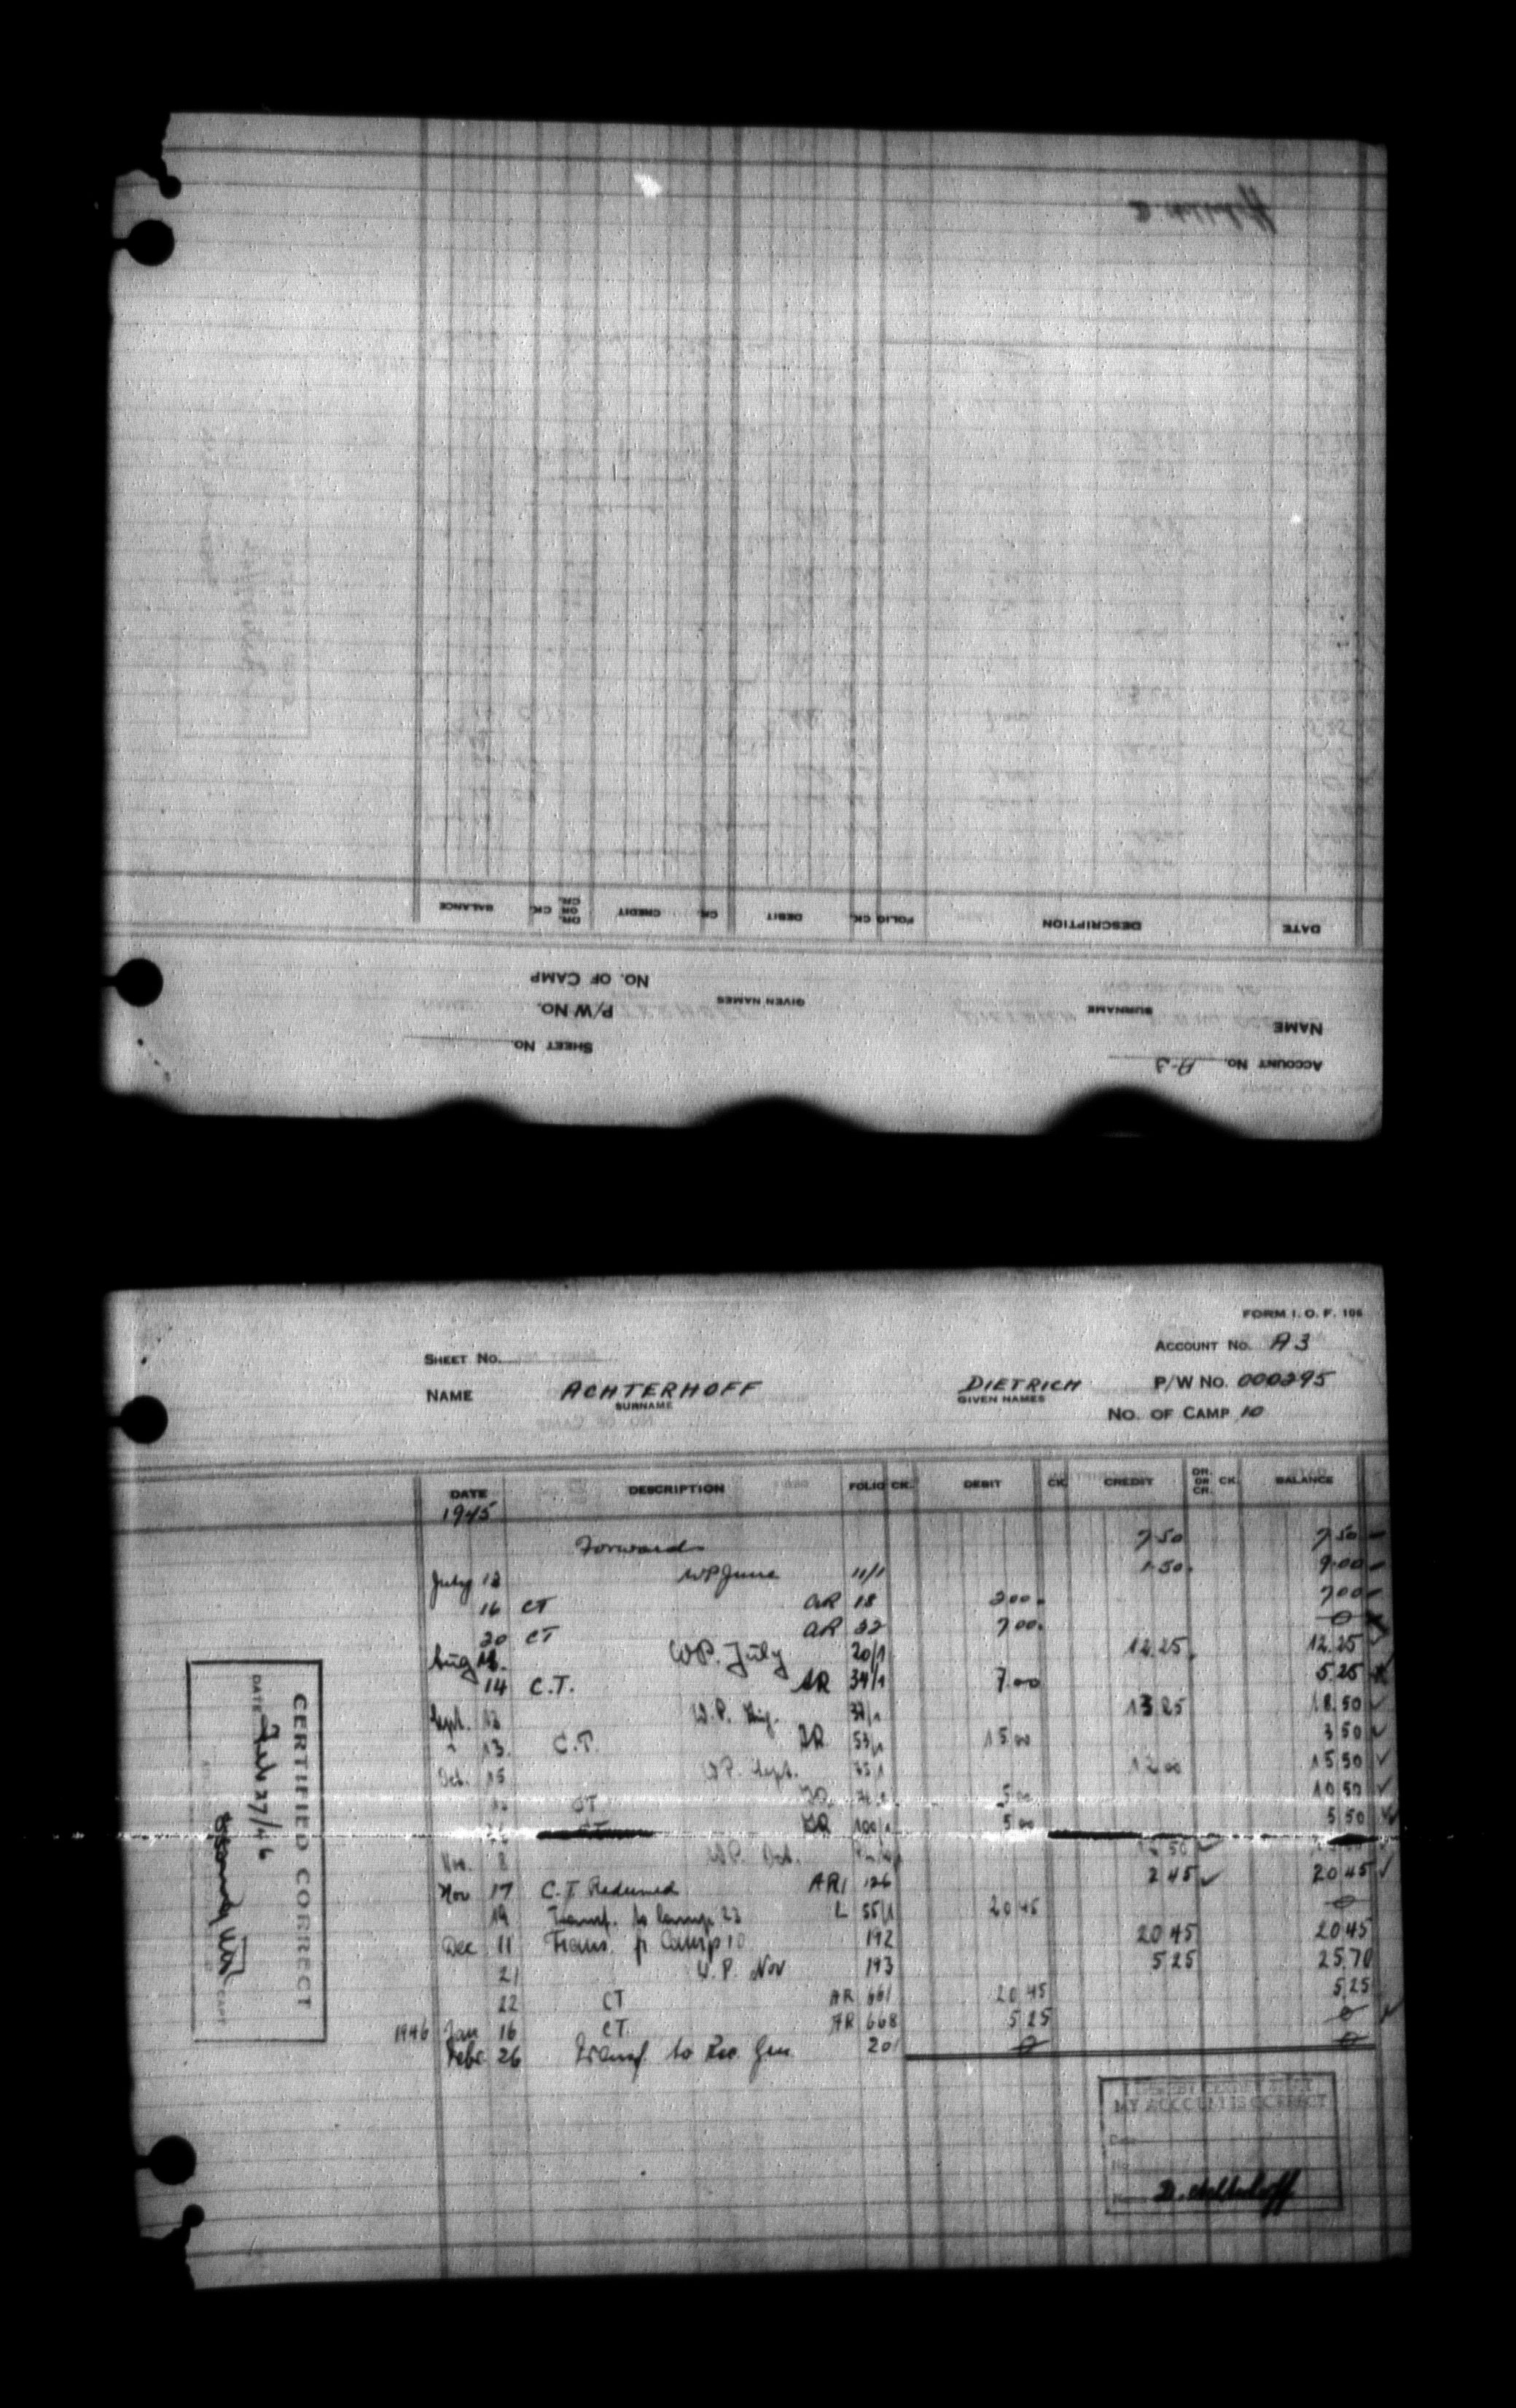 ACCOUNT No. A-3
SHEET No.
NAME
SURNAME
GIVEN NAMES
P/W No.
NO. OF CAMP
DATE DESCRIPTION FOLIO CK. DEBIT CK. CREDIT DR. OR CR. CK. BALANCE
FORM I. O. F. 106
SHEET No. ACCOUNT No. A3
NAME ACHTERHOFF DIETRICH P/W No. 000295
SURNAME GIVEN NAMES
NO. OF CAMP 10
DATE DESCRIPTION FOLIO CK. DEBIT CK. CREDIT DR. OR CR. CK. BALANCE
1945
Forward 7 50 7 50
July 12 WP June 11/1 1 50 9 00
16 CT AR 18 2 00 7 00
20 CT AR 22 7 00 0
Aug W.P. July 20/1 12 25 12 25
14 C.T. AR 34/1 7 00 5 25
Sept. 12 W.P. Aug. 37/1 13 25 18 50
" 13. C.T. AR 53/1 15 00 3 50
Oct. 15 W.P. Sept. 75/1 12 00 15 50
CT 5 00 10 50
AR 100/1 5 00 5 50
Nov. 8 W.P. Oct. 12 50
Nov 17 C.T Redeemed AR/ 126 2 45 20 45
19 Transf. to Camp 23 L 55/1 20 45 0
Dec 11 Trans. fr Camp 10 192 20 45 20 45
21 W.P. Nov 193 5 25 25 70
22 CT AR 661 20 45 5 25
1946 Jan 16 CT. AR 668 5 25 0
Febr. 26 Transf. to Rec. Gen. 201 0 0
CERTIFIED CORRECT
DATE Feb 27/46
I HEREBY CERTIFY THAT
MY ACCOUNT IS CORRECT
D. Achterhoff